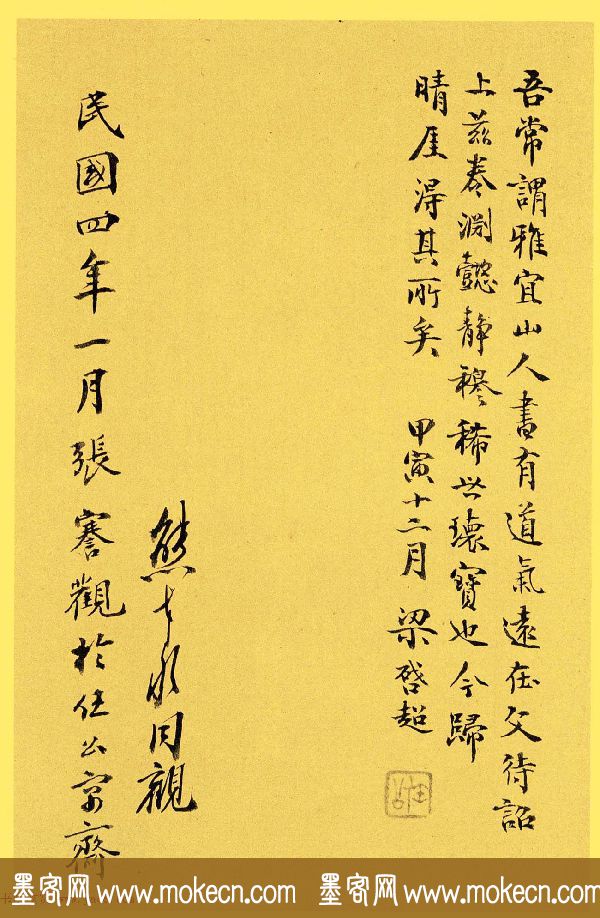 吾常謂雅宜山人書有道氣遠在文待詔
上茲卷淵懿靜穆稀世瓌寶也今歸
晴厓得其所矣　甲寅十二月　梁啓超
熊□□同觀
民國四年一月張謇觀於任公寓齋
墨客网 www.mokecn.com 墨客网 www.mokecn.com